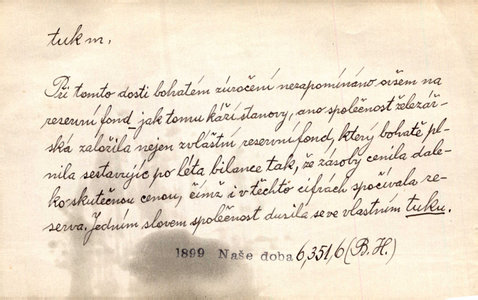 tuk m.
Při tomto dosti bohatém zúročení nezapomínáno ovšem na
reservní fond – jak tomu káží stanovy, ano společnost železář-
ská založila nejen zvláštní reservní fond, který bohatě pl-
nila sestavujíc po léta bilance tak, že zásoby cenila dale-
ko skutečnou cenou, čímž i v těchto cifrách spočívala re-
serva. Jedním slovem společnost dusila se ve vlastním tuku.
1899 Naše doba 6,351,6 (B. H.)